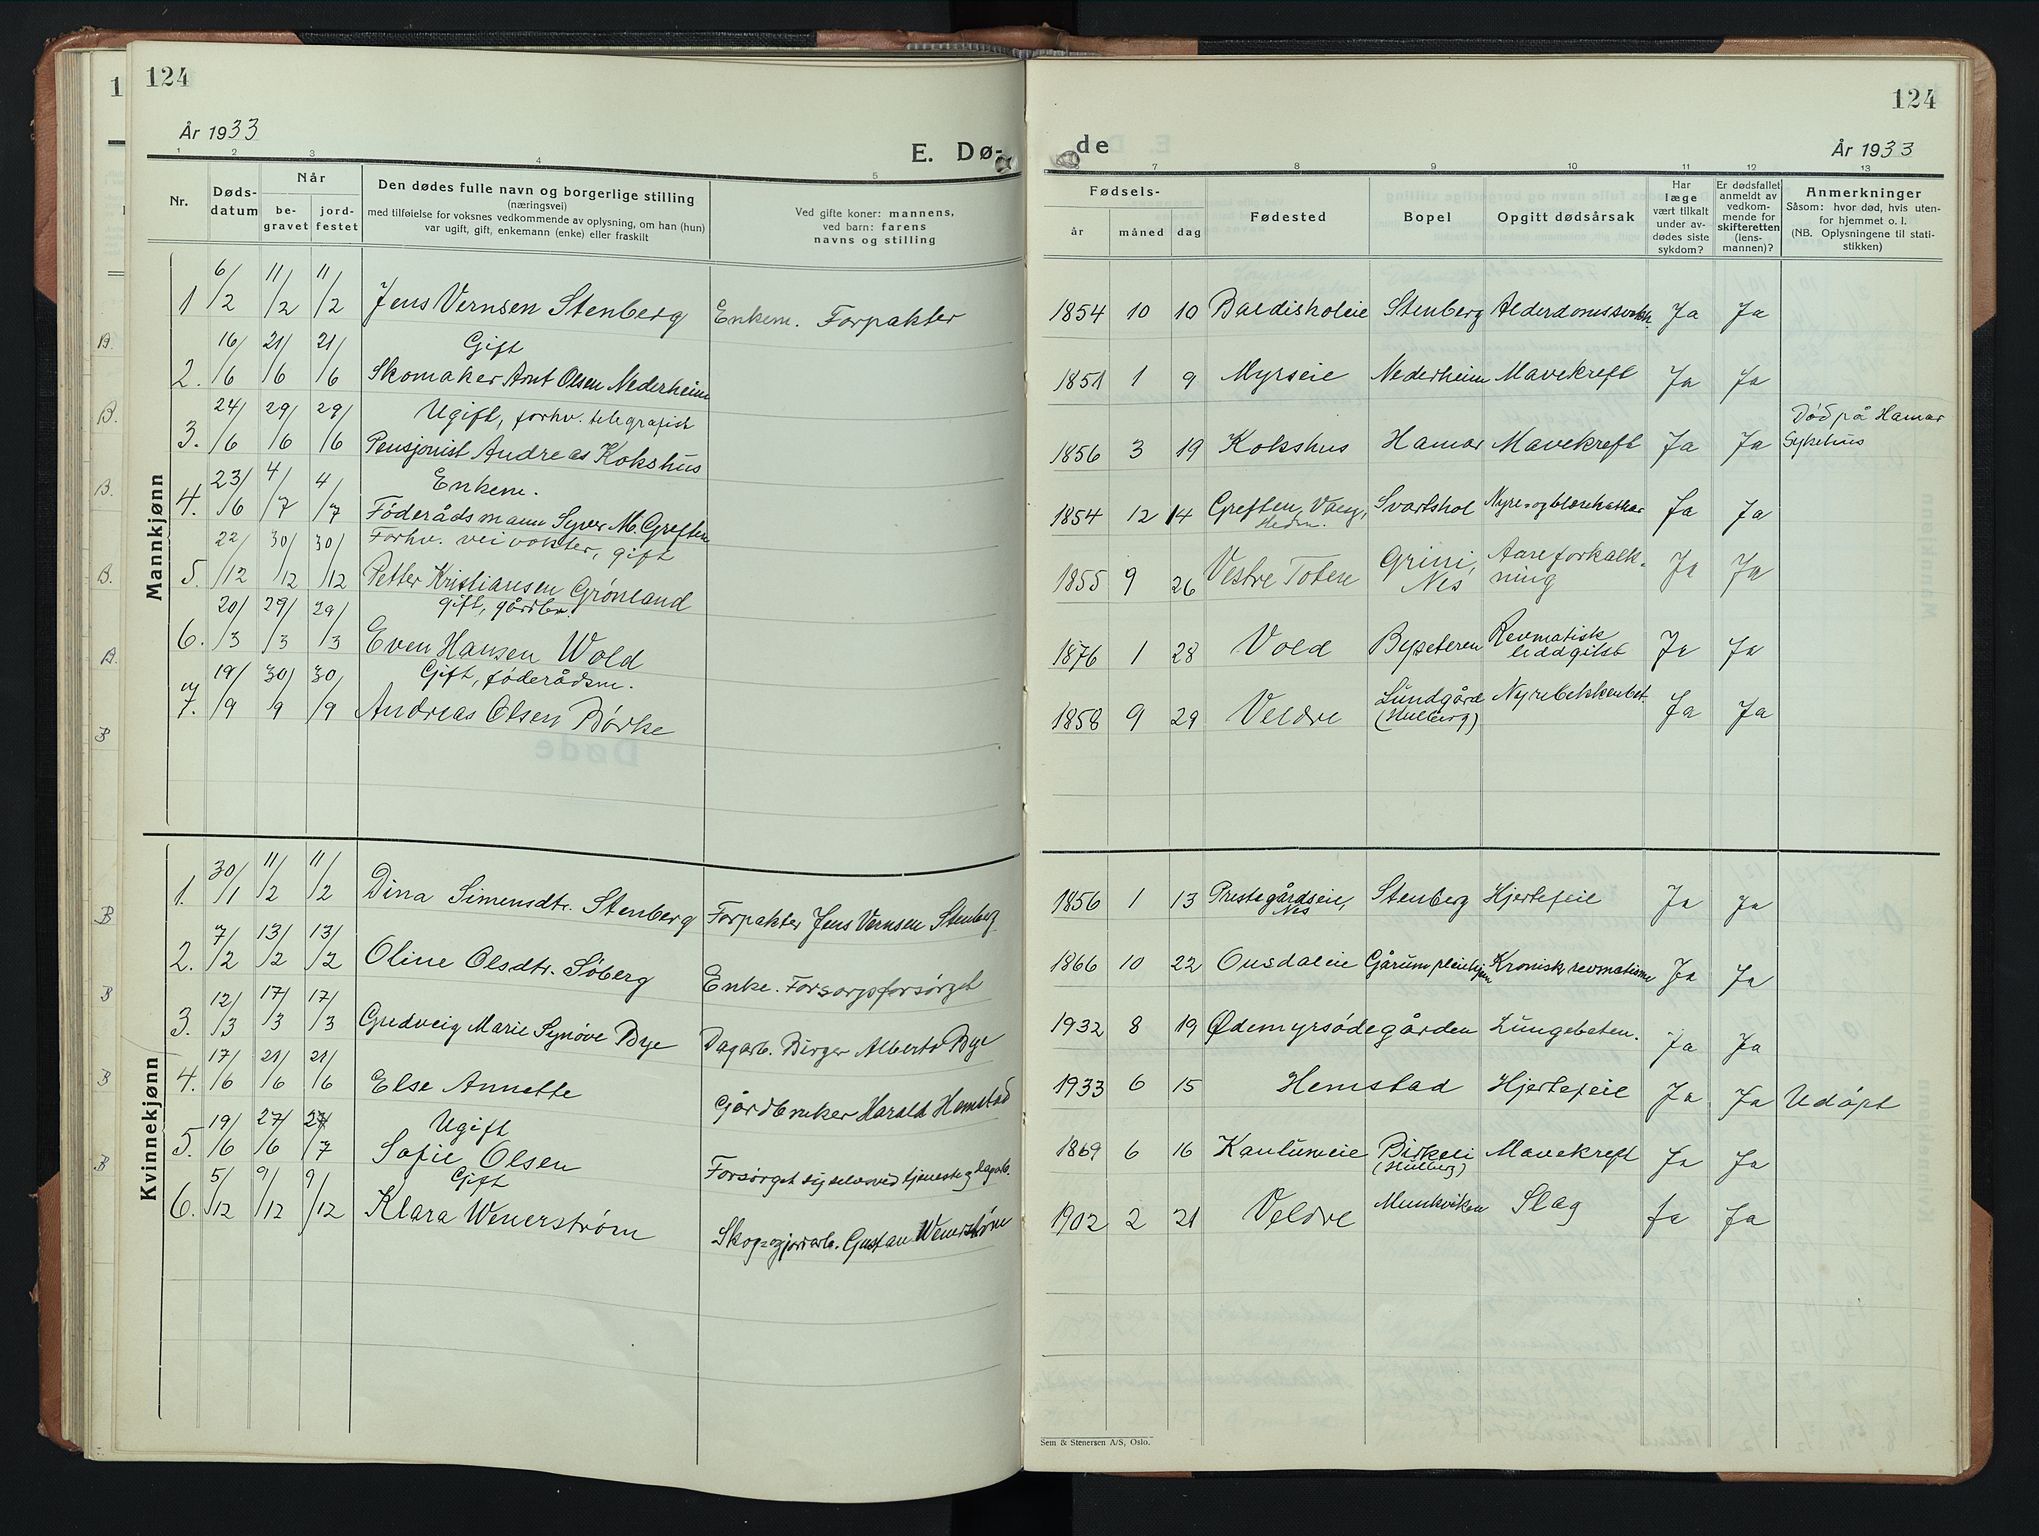 124
År 1933
E. Dø-
1 2 3 4 5
Nr.
Døds-
datum
Når
be-
gravet
jord-
festet
Den dødes fulle navn og borgerlige stilling
(næringsvei)
med tilføielse for voksnes vedkommende av oplysning, om han (hun)
var ugift, gift, enkemann (enke) eller fraskilt
Ved gifte koner: mannens,
ved barn: farens
navns og stilling
Mannkjønn
1 6/2 11/2 11/2 Jens Vernsen Stenberg Enkem. Forpakter
Gift
2. 16/6 21/6 21/6 Skomaker Arnt Olsen Nederheim
Ugift, forhv. telegrafist
3. 24/6 29/6 29/6 Pensjonist Andreas Kokshus
Enkem.
4. 23/6 4/7 4/7 Føderådsmann Syver M. Greften
Forhv. veivokter, gift
5. 22/12 30/12 30/12 Petter Kristiansen Grønland
gift, gårdbr.
6. 20/3 29/3 29/3 Even Hansen Wold
Gift, føderådsm.
7. 19/9 30/9 30/9 Andreas Olsen Børke
Kvinnekjønn
1. 30/1 11/2 11/2 Dina Simensdtr. Stenberg Forpakter Jens Vernsen Stenberg
2. 7/2 13/2 13/2 Oline Olsdtr. Søberg Enke. Forsorgsforsørget
3. 12/3 17/3 17/3 Gudveig Marie Synøve Bye Dagarb. Birger Alberto Bye
4. 17/6 21/6 21/6 Else Annette Gårdbruker Harald Hemstad
Ugift
5. 19/6 27/6 27/7 Sofie Olsen Forsørget sig selv ved tjeneste og dagarb.
Gift
6. 5/12 9/12 9/12 Klara Wenerstrøm Skog- og jordarb. Gustav Wenerstrøm
124
de
År 1933
7 8 9 10 11 12 13
Fødsels-
år måned dag
Fødested
Bopel
Opgitt dødsårsak
Har
læge
vært tilkalt
under av-
dødes siste
sykdom?
Er dødsfallet
anmeldt av
vedkom-
mende for
skifteretten
(lens-
mannen)?
Anmerkninger
Såsom: hvor død, hvis uten-
for hjemmet o. l.
(NB. Oplysningene til stati-
stikken)
1854 10 10 Baldiskoleie Stenberg Alderdomssvekk. Ja Ja
1851 1 9 Myrseie Nederheim Mavekreft Ja Ja
1856 3 19 Kokshus Hamar Mavekreft Ja Ja Død på Hamar
Sykehus
1854 12 14 Greften, Vang, Svartshol Nyre- og blærekatar Ja Ja
Hedm.
1855 9 26 Vestre Toten Grini, Aareforkalk- Ja Ja
Nes ning
1876 1 28 Vold Bypeteren Revmatisk Ja Ja
leddgikt
1858 9 29 Veldre Lundgård Nyrebekkenbet. Ja Ja
(Hulberg)
1856 1 13 Prestegårdseie, Stenberg Hjertefeil Ja Ja
Nes
1866 10 22 Ousdaleie Gårum pleiehjem Kronisk revmatisme Ja Ja
1932 8 19 Ødemyrsødegården Lungebeten. Ja Ja
1933 6 15 Hemstad Hjertefeil Ja Ja Udøpt
1869 6 16 Kaulumeie Birkeli Mavekreft Ja Ja
(Hulberg)
1902 2 21 Veldre Munkviken Slag Ja Ja
Sem & Stenersen A/S, Oslo.